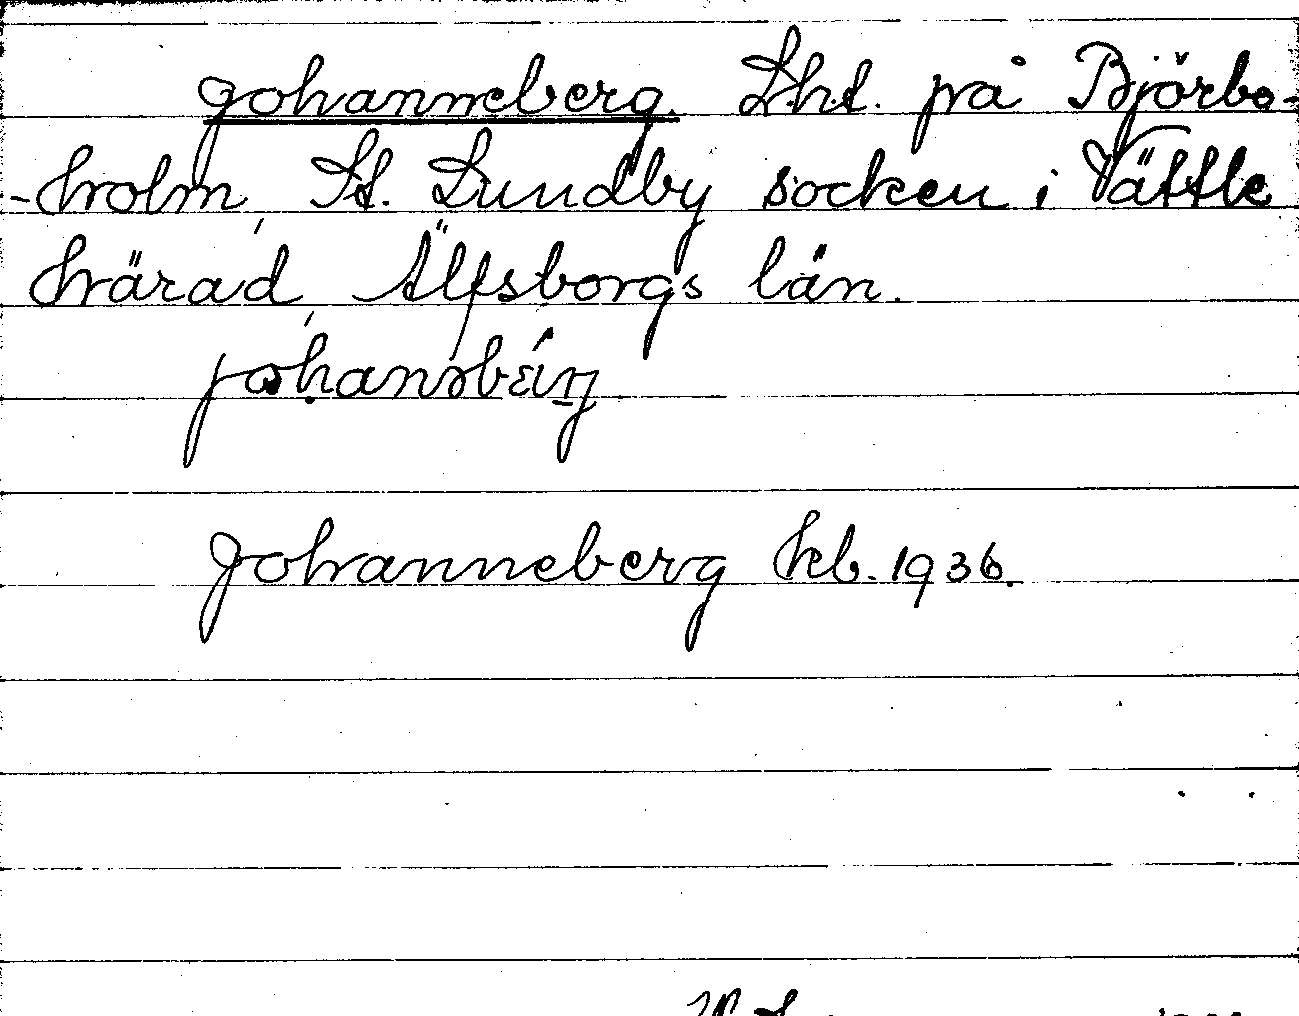 Johanneberg. Lht. på Björbo-
-holm, St. Lundby socken i Vättle
härad, Älfsborgs län.
Johanneberg kb. 1936.